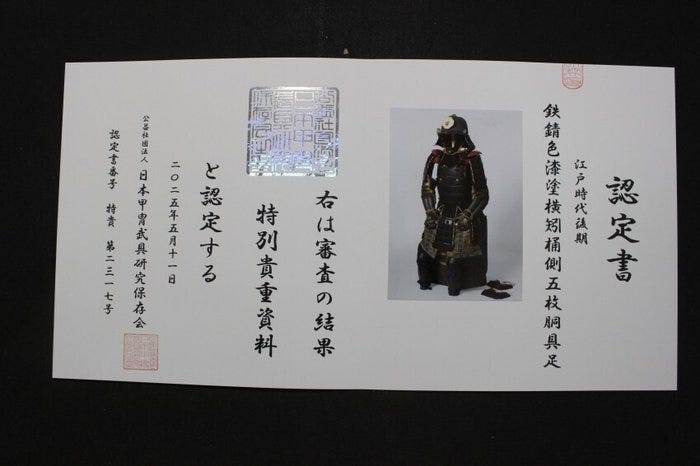 認定書
江戸時代後期
鉄錆色漆塗横矧桶側五枚胴具足
右は審査の結果
特別貴重資料
と認定する
二〇二五年五月十一日
公益社団法人 日本甲冑武具研究保存会
認定書番号 特貴 第二三一七号